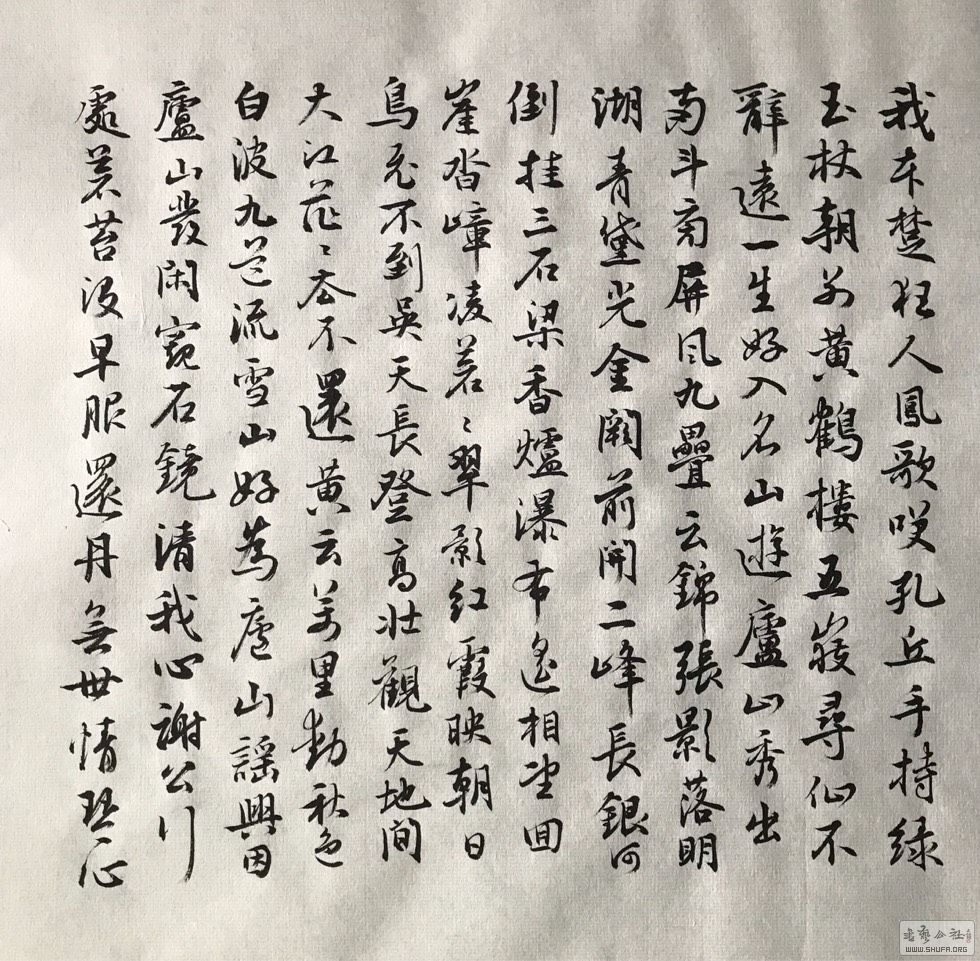 我本楚狂人鳳歌咲孔丘手持緑
玉杖朝别黄鶴樓五嶽尋仙不
辭遠一生好入名山遊廬山秀出
南斗旁屏風九疊云錦張影落明
湖青黛光金闕前開二峰長銀河
倒挂三石梁香爐瀑布遙相望囬
崖沓嶂凌蒼〻翠影红霞映朝日
鳥飛不到吳天長登高壯觀天地間
大江茫〻去不還黄云萬里動秋色
白波九道流雪山好為廬山謡興因
廬山發閑窺石鏡清我心謝公行
處蒼苔没早服還丹無世情琴心
书艺公社
WWW.SHUFA.ORG